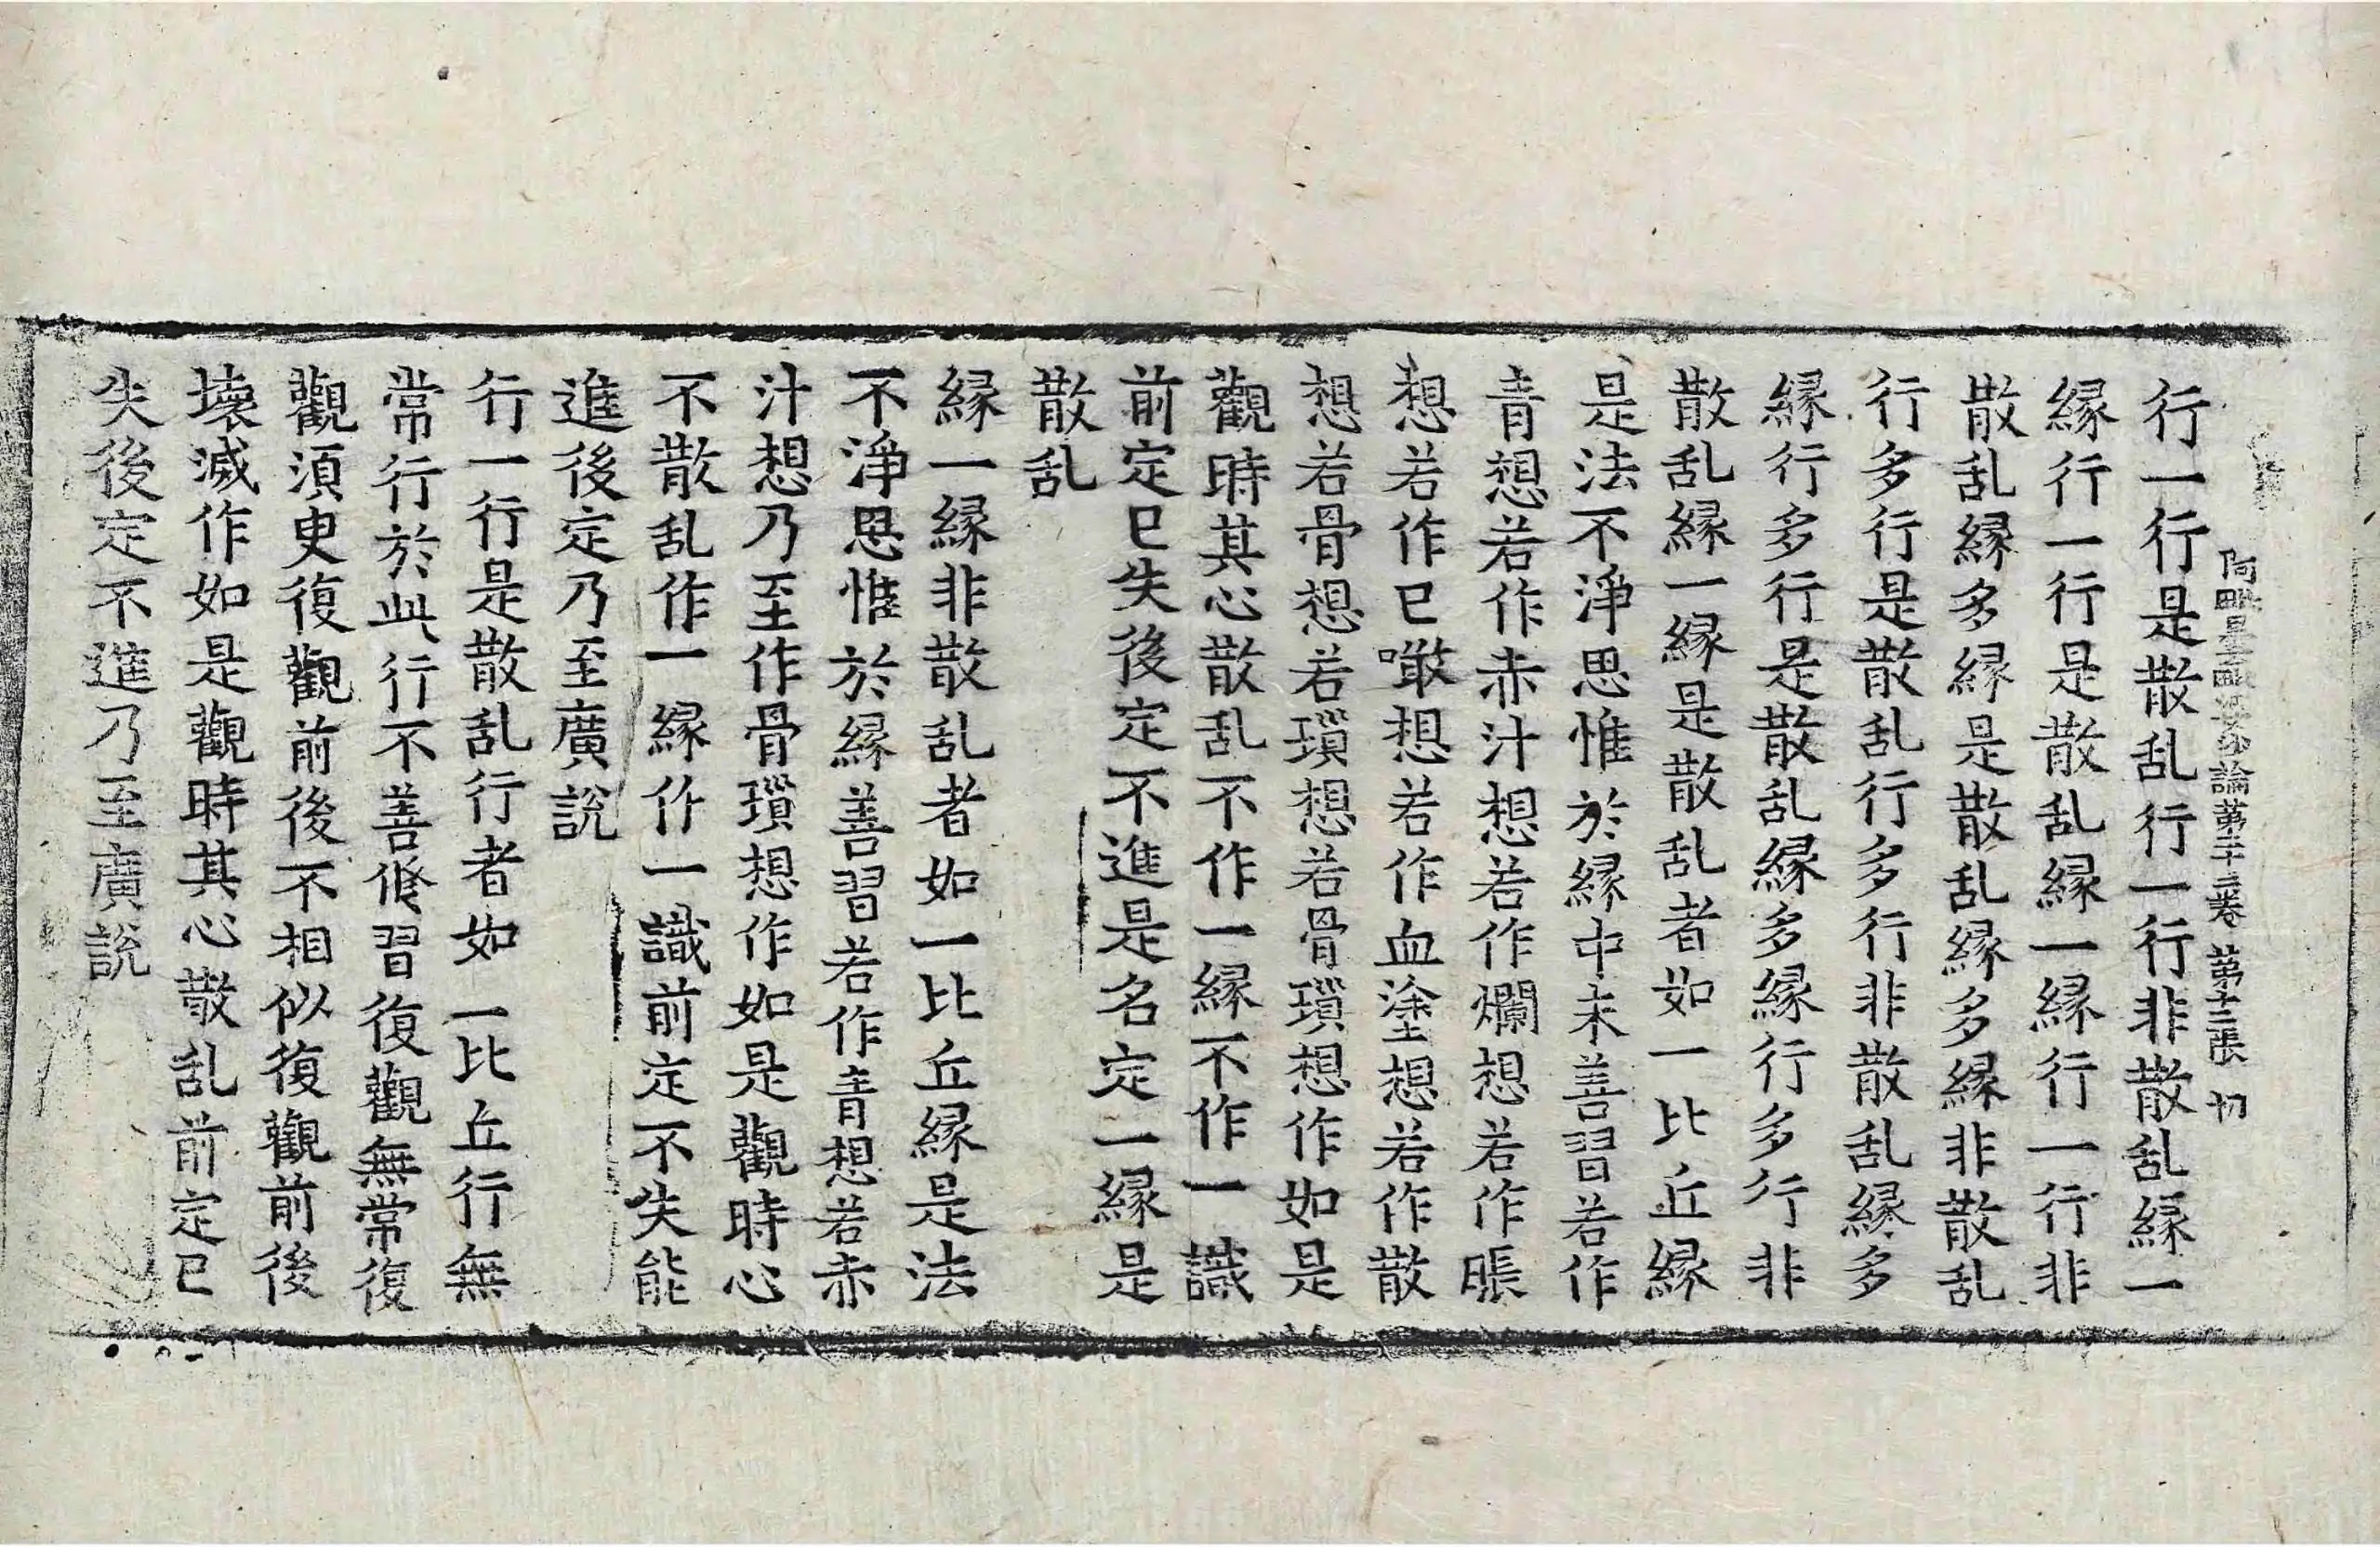 阿毗曇毗婆沙論第十二卷 第十三張 切
行一行是散乱行一行非散乱縁一
縁行一行是散乱縁一縁行一行非
散乱縁多縁是散乱縁多縁非散乱
行多行是散乱行多行非散乱縁多
縁行多行是散乱縁多縁行多行非
散乱縁一縁是散乱者如一比丘縁
是法不淨思惟於縁中未善習若作
青想若作赤汁想若作爛想若作脹
想若作已噉想若作血塗想若作散
想若骨想若瑣想若骨瑣想作如是
觀時其心散乱不作一縁不作一識
前定已失後定不進是名定一縁是
散乱
縁一縁非散乱者如一比丘縁是法
不淨思惟於縁善習若作青想若赤
汁想乃至作骨瑣想作如是觀時心
不散乱作一縁作一識前定不失能
進後定乃至廣說
行一行是散乱行者如一比丘行無
常行於此行不善修習復觀無常復
觀須臾復觀前後不相似復觀前後
壞滅作如是觀時其心散乱前定已
失後定不進乃至廣說